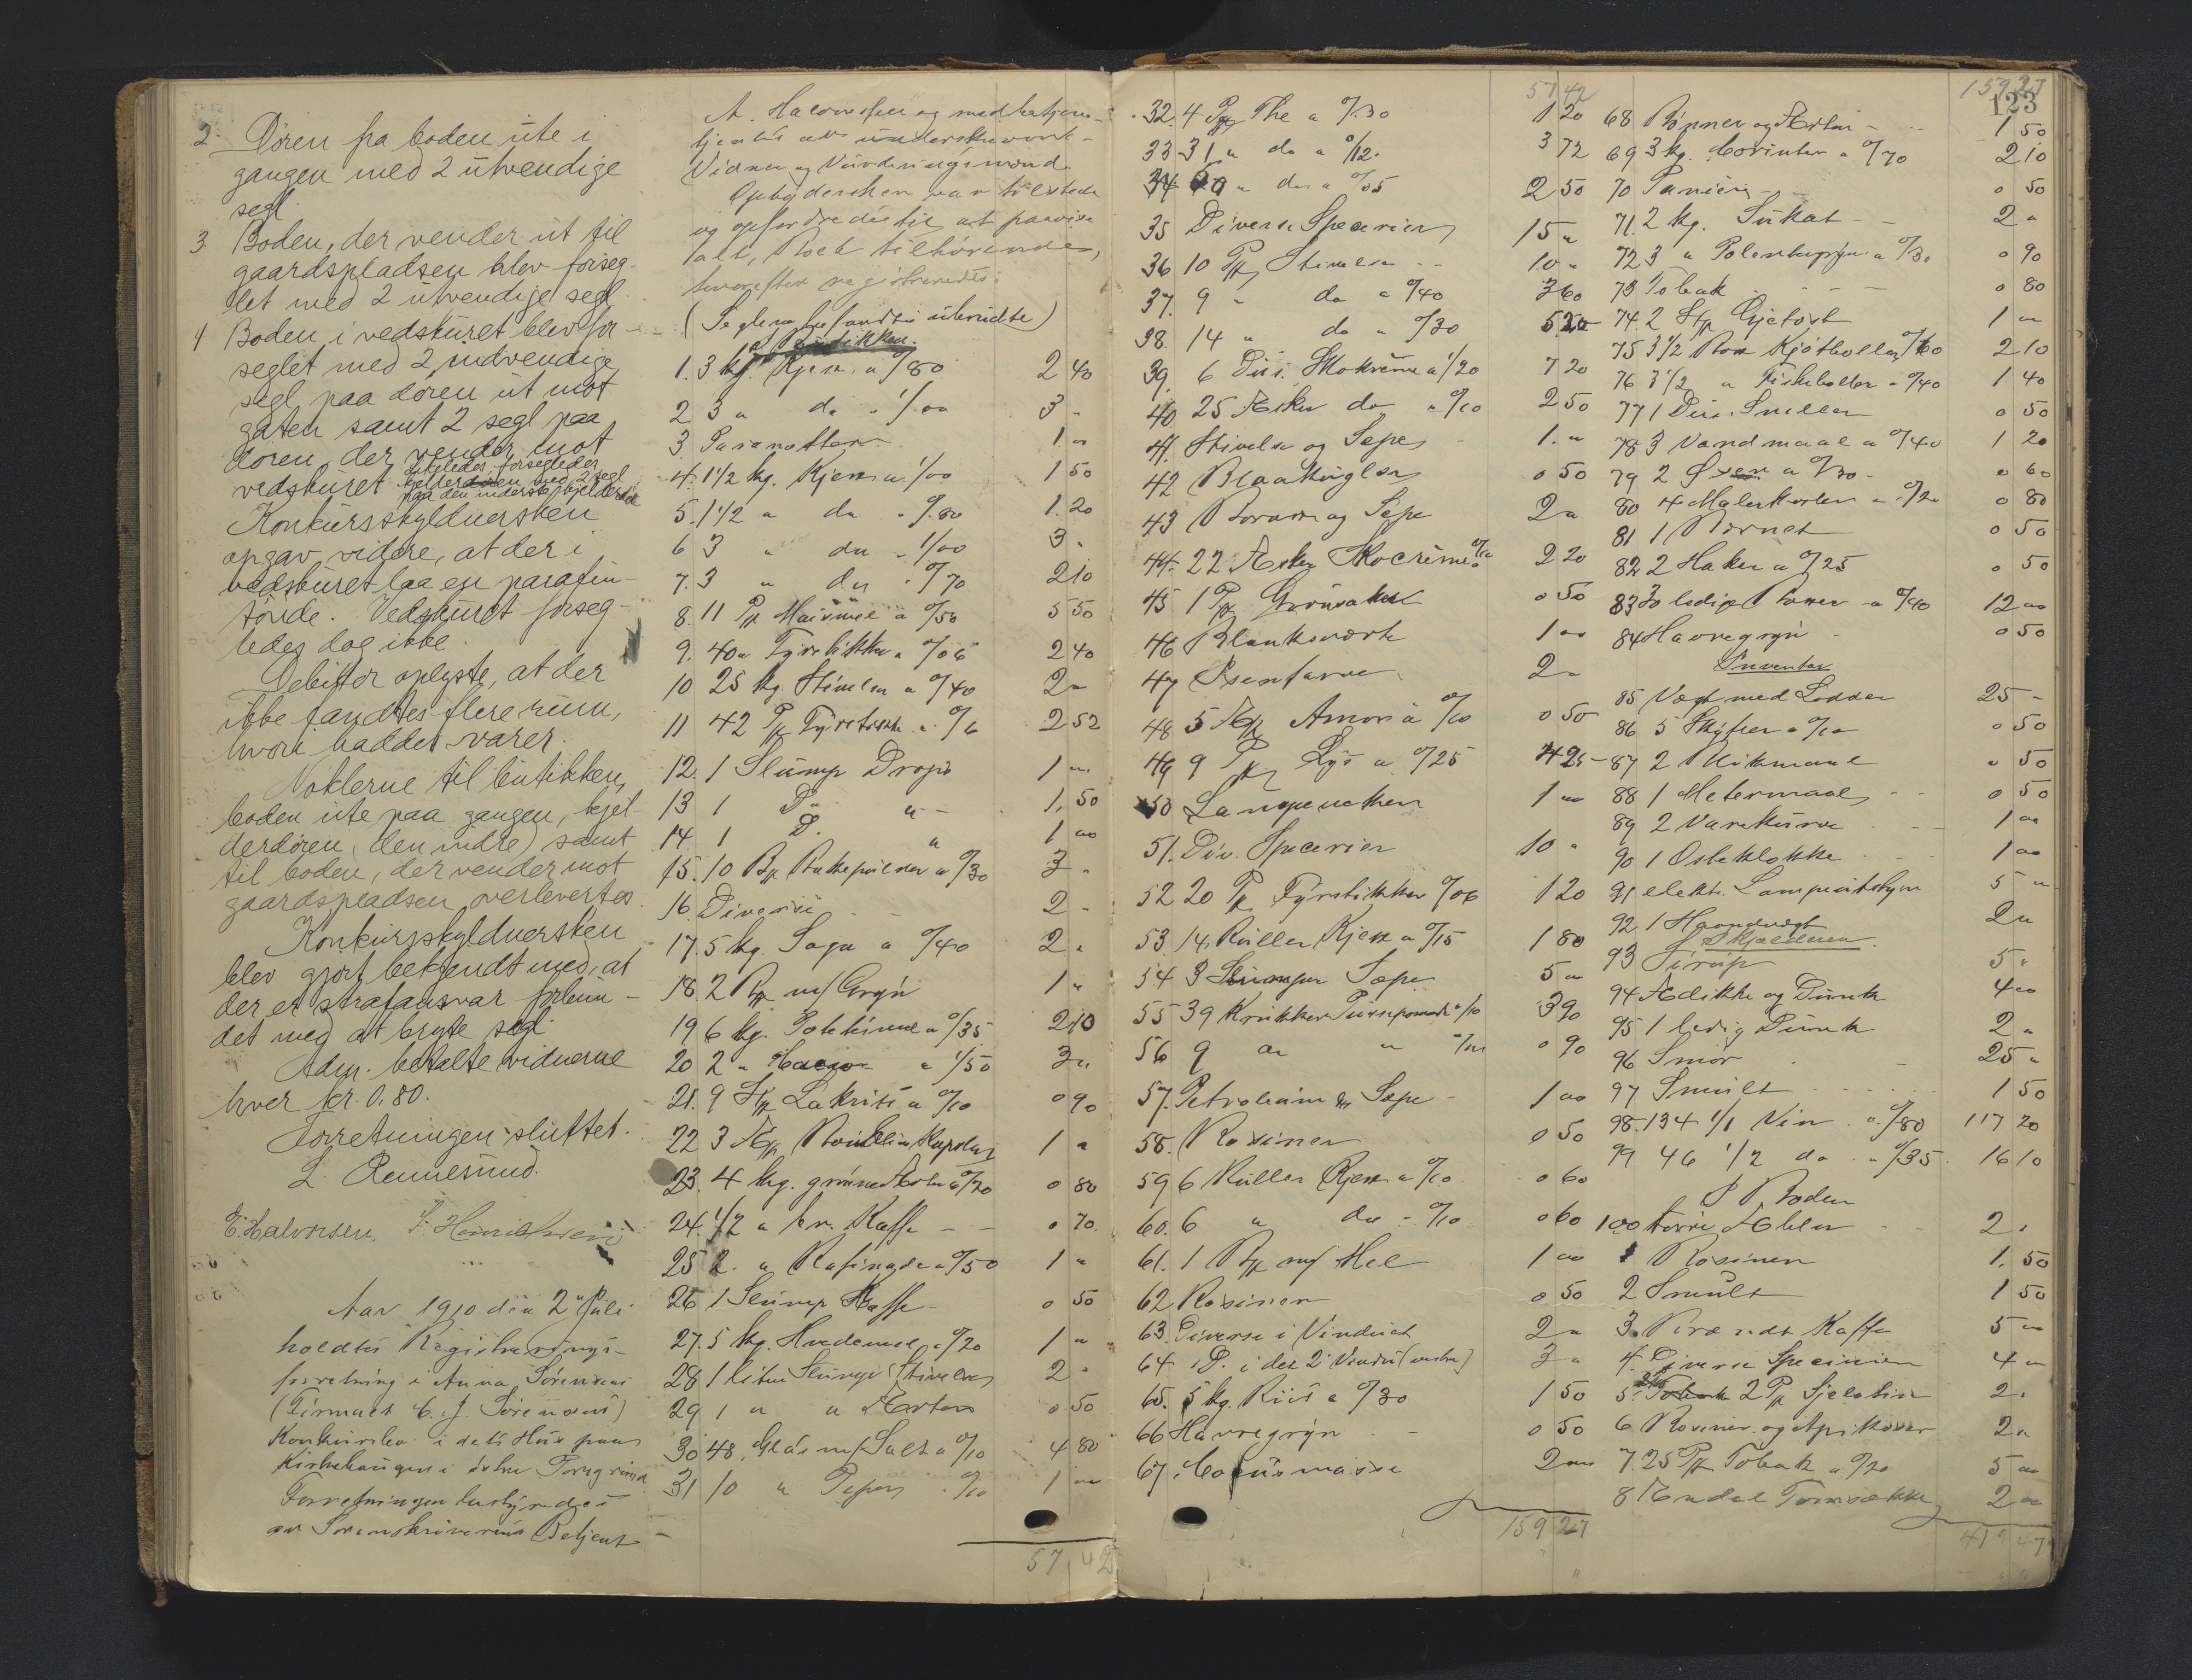 2. Døren fra boden ute i
gangen med 2 utvendige
segl.
3. Boden, der vender ut til
gaardspladsen blev forseg-
let med 2 utvendige segl
4 Boden i vedskuret blev for-
seglet med 2 indvendige
segl paa døren ut mot
gaten samt 2 segl paa
døren, der vender mot
vedskuret Likeledes forsegledes
kjelderdøren med 2 segl
paa den inderste kjelderdør
Konkursskyldnersken
opgav videre, at der i
vedskuret laa en parafin-
tønde. Vedskuret forseg-
ledes dog ikke.
Debitor oplyste, at der
ikke fandtes flere rum,
hvori haddes varer.
Nøklerne til butikken,
boden ute paa gangen, kjel-
derdøren (den indre) samt
til boden, der vender mot
gaardspladsen overlevertes.
Konkursskyldnersken
blev gjort bekjendt med, at
der er strafansvar forbun-
det med at bryte segl.
Adm. betalte vidnerne
hver kr. 0.80.
Forretningen sluttet.
L. Rennesund.
E. Halvorsen.
Aar 1910 den 2 Juli
holdtes Registrerings-
forretning i Anna Sørensens
(Firmaet C. J. Sørensens)
Konkursbo i dets Hus paa
Kirkehaugen i østre Porsgrund
Forretningen bestyredes
av Sorenskriverens Betjent
A. Halvorsen og medbetjen-
tjentes av underskrevne
Vidner og Vurderingsmænd.
Opbydersken var tilstede
og opfordredes til at paavise
alt, Boet tilhørende,
hvorefter registreredes:
(Seglene befandtes ubrudte)
I Butikken.
1. 3 kg. Kjex a 0/80 2 40
2 3 " do " 1/00 3 "
3. Paranøtter 1 "
4. 1 1/2 kg. Kjex a 1/00 1 50
5. 1 1/2 " do " 0/80 1.20
6 3 " do " 1/00 3 "
7. 3 " do " 0/70 2 10
8. 11 Pk Maismel a 0/50 5 50
9. 40 " Fyrstikker a 0/06 2 40
10 25 kg. Stivelse a 0/40 2 "
11 42 Pk Fyrstikker a 0/6 2 52
12. 1 Slump Drops 1 "
13 1 Do " 1,50
14. 1 D. " 1 00
15. 10 Bakepulver a 0/30 3 "
16. Diverse 2 "
17. 5 kg. Sago a 0/40 2 "
18. 2 Ps m/ Gryn 1 "
19 6 kg. Potetmel a 0/35 2 10
20 2 " Cacao a 1/50 3 "
21. 9 Stk Lakrits a 0/10 0 90
22 3 Bouillon Kapsler 1 "
23. 4 kg. grønne Erter a 0/20 0 80
24. 1/2 " br. Kaffe 0 70
25 2. " Rasingde a 0/50 1 "
26 1 Slump Kaffe 0 50
27. 5 kg. Hvedemel a 0/20 1 "
28 1 liten Slump Stivelse 2 "
29 1 " " Erter 0 50
30 48 Glas m/ Salt a 0/10 4 80
31 10 " Peper 0/10 1 00
57 42
57 42
32. 4 Pk The a 0/30 1 20
33 31 " do a 0/12 3 72
34 " do a 0/05 2 50
35 Diverse Specerier 15 "
36 10 Pk Stivelse 10 "
37. 9 " do a 0/40 3 60
38. 14 " do " 0/30
39. 6 Dus. Skokreme a 1/20 7 20
40 25 Æsker do a 0/10 2 50
41. Stivelse og Sepe 1. "
42 Blaakugler 0 50
43 Borax og Sepe 2 "
44. 22 Æsker Skocreme 0/10 2 20
45 1 Pk Grønsaker 0 50
46 Blanksverte 1 00
47 Ysenfarve 2 "
48 5 Amor a 0/10 0 50
49 9 Pk Lys a 0/25
50 Lampeveker 1 00
51. Div. Specerier 10 "
52 20 Pk Fyrstikker 0/06 1 20
53. 14 Ruller Kjex a 0/15 1 80
54 3 Slumper Sæpe 5 "
55 39 Krukker Pussepomade a 0/10 3 90
56 9 do " 0/10 0 90
57. Petroleum Sæpe 1 00
58. Rosiner 0 50
59 6 Ruller Kjex a 0/10 0 60
60. 6 " do " 0/10 0 60
61. 1 Ps m/ Mel 1 00
62 Rosiner 0 50
63. Diverse i Vinduet 2 "
64. D. i det 2 Vindu (venstre) 3 "
65. 5 kg. Riis a 0/30 1 50
66 Havregryn 0 50
67 Cocusmasse 2 00
159 27
159 27
123
68 Bønner og Erter 1 50
69 3 kg. Corinter a 0/70 2 10
70 Paniér 0 50
71. 2 kg. Sukat 2 "
72 3 " a 0/30 0 90
73 Tobak 0 80
74. 2 Stk Gjetost 1 "
75 3 1/2 Box Kjøtboller a 0/60 2 10
76 3 1/2 " Fiskeboller a 0/40 1 40
77 1 Dus. Sneller 0 50
78 3 Vandmaal a 0/40 1 20
79 2 Øxer a 0/30 0 60
80 4 Malerkoster a 0/20 0 80
81 1 0 50
82 2 Haker a 0/25 0 50
83 30 ledige Boxer a 0/40 12 00
84 Havregryn 0 50
Inventar
85 Vægt med Lodder 25 "
86 5 Skuffer a 0/10 0 50
87 2 Blikmaal 0 50
88 1 Metermaal 0 50
89 2 Varekurve 1 00
90 1 Osteklokke 1 00
91 elektr. Lampeutstyr 5 "
92 1 Haandvægt 2 "
I Kjælderen.
93 Sirup 5 "
94 Edikke og Dunk 4 00
95 1 ledig Dunk 2 "
96 Smør 25 "
97 Smult 1 50
98. 134 1/1 Vin a 0/80 117 20
99 46 1/2 do " 0/35 16 10
I Boden
100 tørre Æbler 2 "
1 Rosiner 1. 50
2 Smult 1 50
3. Brændt Kaffe 5 00
4. Diverse Specerier 4 "
5. 2 Pk Gjelatin 2 "
6 Rosiner og Aprikoser 2 "
7. 25 Pk Tobak a 0/20 5 00
8 Endel Tomsække 2 00
419 47